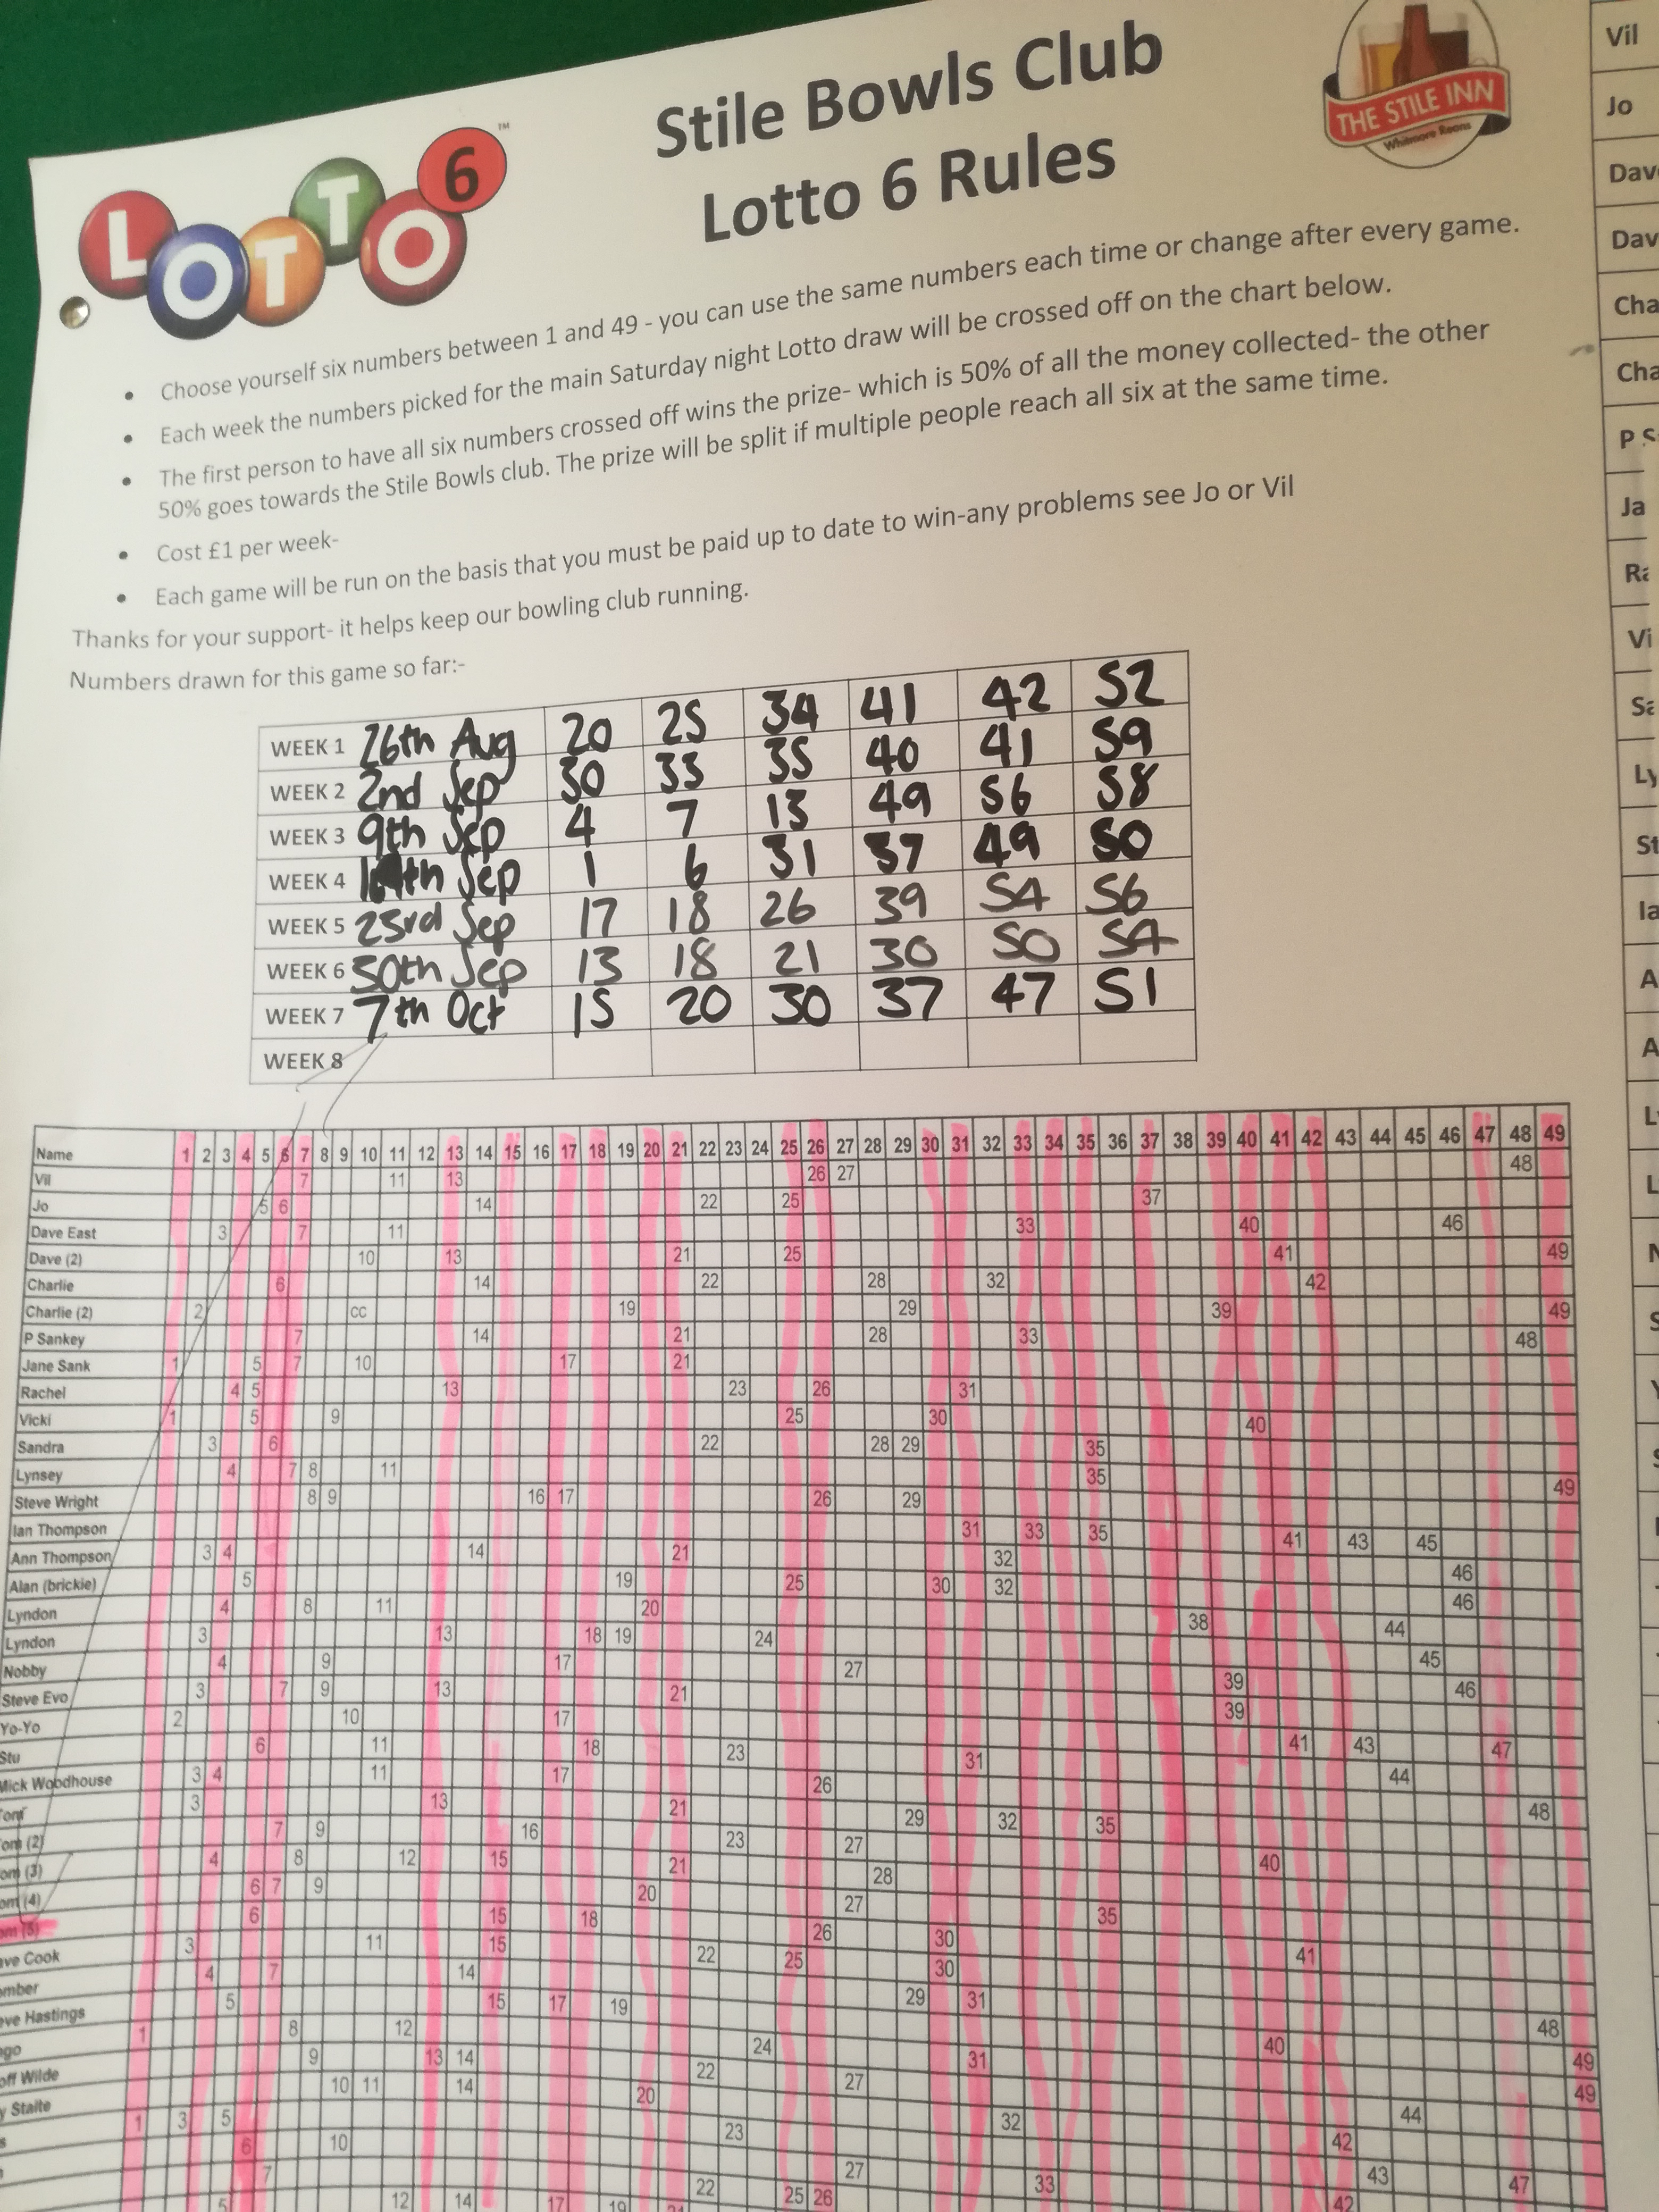 LOTTO 6 ™
Stile Bowls Club
Lotto 6 Rules
THE STILE INN
Whitmore Reans
• Choose yourself six numbers between 1 and 49 - you can use the same numbers each time or change after every game.
• Each week the numbers picked for the main Saturday night Lotto draw will be crossed off on the chart below.
• The first person to have all six numbers crossed off wins the prize- which is 50% of all the money collected- the other
50% goes towards the Stile Bowls club. The prize will be split if multiple people reach all six at the same time.
• Cost £1 per week-
• Each game will be run on the basis that you must be paid up to date to win-any problems see Jo or Vil
Thanks for your support- it helps keep our bowling club running.
Numbers drawn for this game so far:-
WEEK 1 26th Aug 20 25 34 41 42 52
WEEK 2 2nd Sep 30 33 35 40 41 59
WEEK 3 9th Sep 4 7 13 49 56 58
WEEK 4 th Sep 1 6 31 37 49 50
WEEK 5 23rd Sep 17 18 26 39 54 56
WEEK 6 30th Sep 13 18 21 30 50 54
WEEK 7 7th Oct 15 20 30 37 47 51
WEEK 8
Name 1 2 3 4 5 6 7 8 9 10 11 12 13 14 15 16 17 18 19 20 21 22 23 24 25 26 27 28 29 30 31 32 33 34 35 36 37 38 39 40 41 42 43 44 45 46 47 48 49
Vil 7 11 13 26 27 48
Jo 5 6 14 22 25 37
Dave East 3 7 11 33 40 46
Dave (2) 10 13 21 25 41 49
Charlie 6 14 22 28 32 42
Charlie (2) 2 cc 19 29 39 49
P Sankey 7 14 21 28 33 48
Jane Sank 1 5 7 10 17 21
Rachel 4 5 13 23 26 31
Vicki 1 5 9 25 30 40
Sandra 3 6 22 28 29 35
Lynsey 4 7 8 11 35 49
Steve Wright 8 9 16 17 26 29
Ian Thompson 31 33 35 41 43 45
Ann Thompson 3 4 14 21 32 46
Alan (brickie) 5 19 25 30 32 46
Lyndon 4 8 11 20 38 44
Lyndon 3 13 18 19 24 45
Nobby 4 9 17 27 39 46
Steve Evo 3 7 9 13 21 39
Yo-Yo 2 10 17 41 43 47
Stu 6 11 18 23 31 44
Mick Woodhouse 3 4 11 17 26 48
3 13 21 29 32 35
om (2) 7 9 16 23 27 40
om (3) 4 8 12 15 21 28
om (4) 6 7 9 20 27 35
om (5) 6 15 18 26 30 41
ave Cook 3 11 15 22 25 30
mber 4 7 14 29 31 48
eve Hastings 5 15 17 19 40 49
ngo 1 8 12 24 31 49
off Wilde 9 13 14 22 27 44
y Staite 10 11 14 20 32 42
1 3 5 23 43 47
6 10 27 33 42
7 22 25 26
5 12 14 17 19 21
Vil
Jo
Dav
Dav
Cha
Cha
P S
Ja
Ra
Vi
Sa
Ly
St
Ia
A
A
L
L
N
S
Y